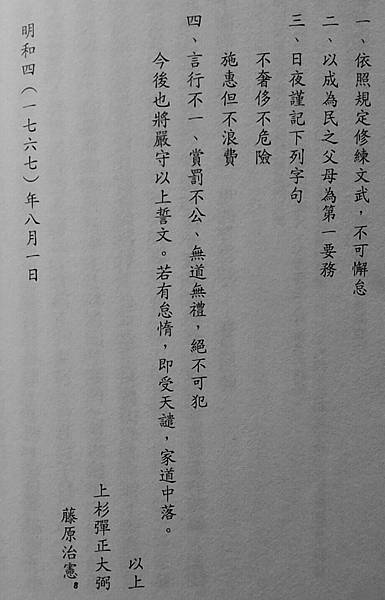 一、依照規定修練文武，不可懈怠
二、以成為民之父母為第一要務
三、日夜謹記下列字句
不奢侈不危險
施惠但不浪費
四、言行不一、賞罰不公、無道無禮，絕不可犯
今後也將嚴守以上誓文。若有怠惰，即受天譴，家道中落。
以上
上杉彈正大弼
藤原治憲。8
明和四（一七六七）年八月一日